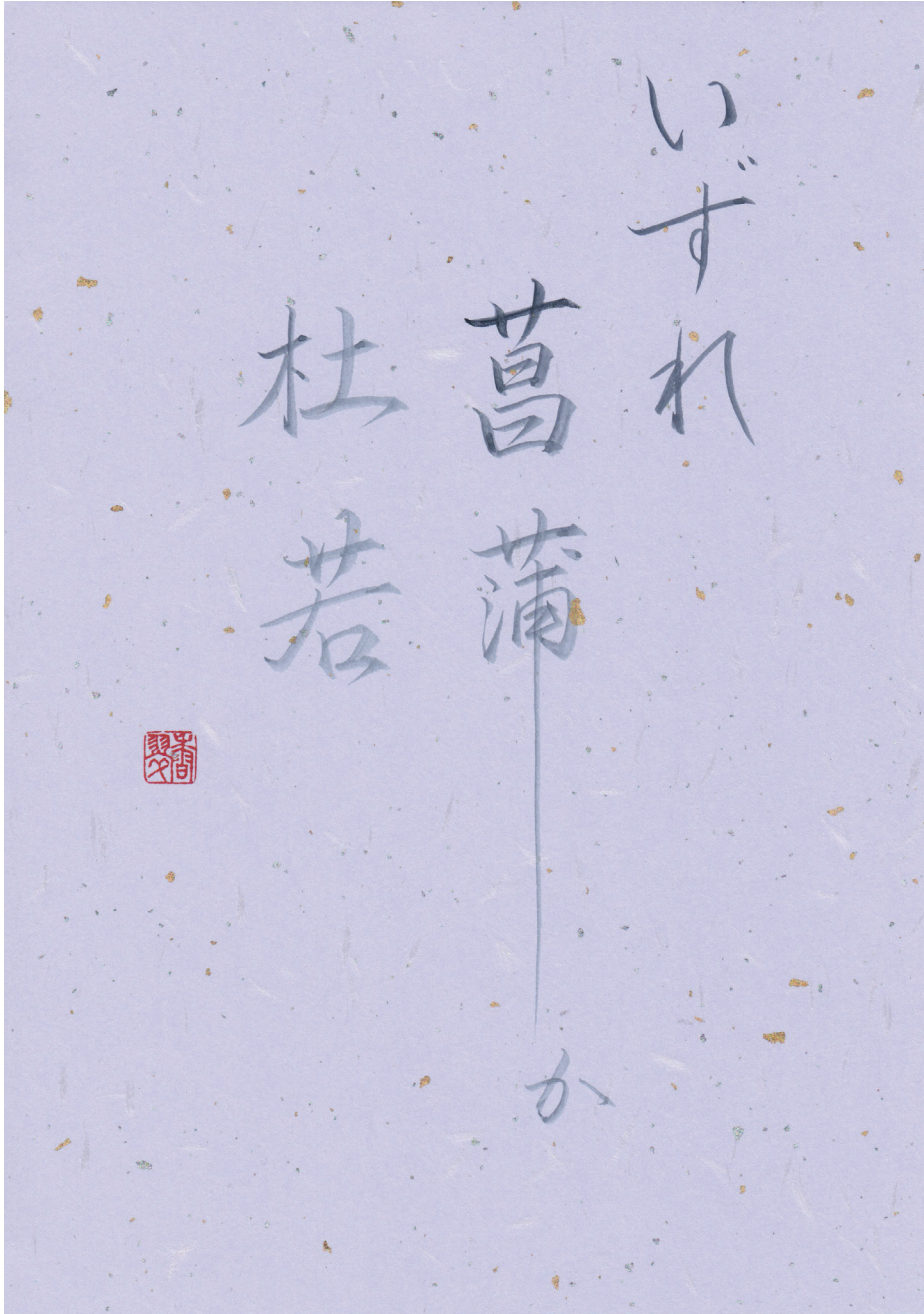 いずれ
菖蒲か
杜若